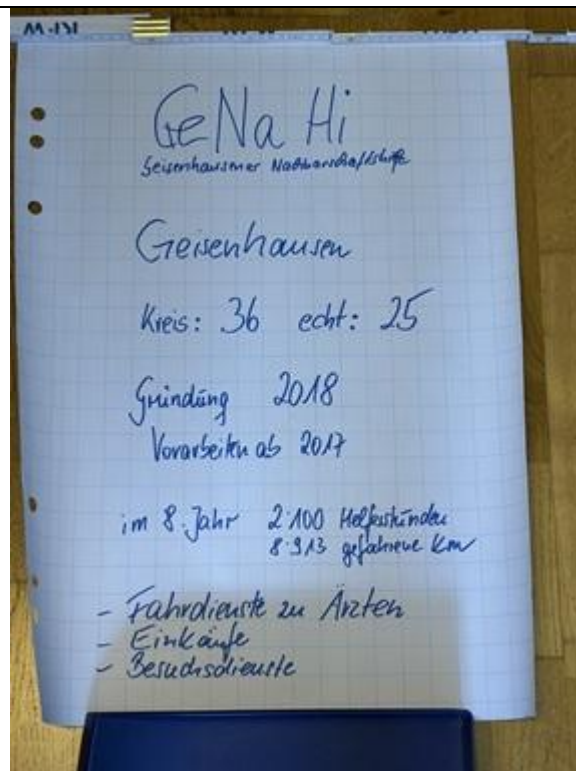 GeNa Hi
Geisenhausener Nachbarschaftshilfe
Geisenhausen
Kreis: 36 echt: 25
Gründung 2018
Vorarbeiten ab 2017
im 8. Jahr 2.100 Helferstunden
8.913 gefahrene Km
- Fahrdienste zu Ärzten
- Einkäufe
- Besuchsdienste